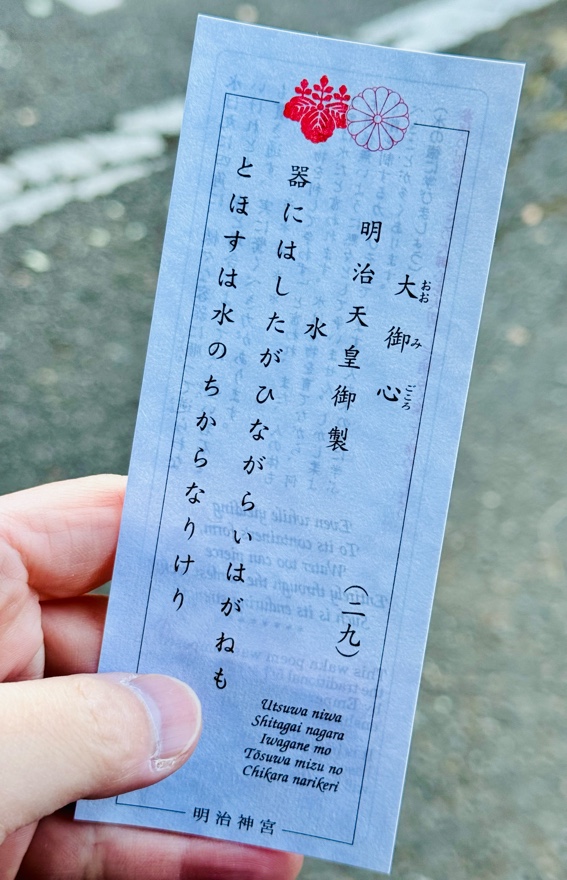 大御心
おおみごころ
明治天皇御製
(二九)
水
器にはしたがひながらいはがねも
とほすは水のちからなりけり
Utsuwa niwa
Shitagai nagara
Iwagane mo
Tōsuwa mizu no
Chikara narikeri
明治神宮